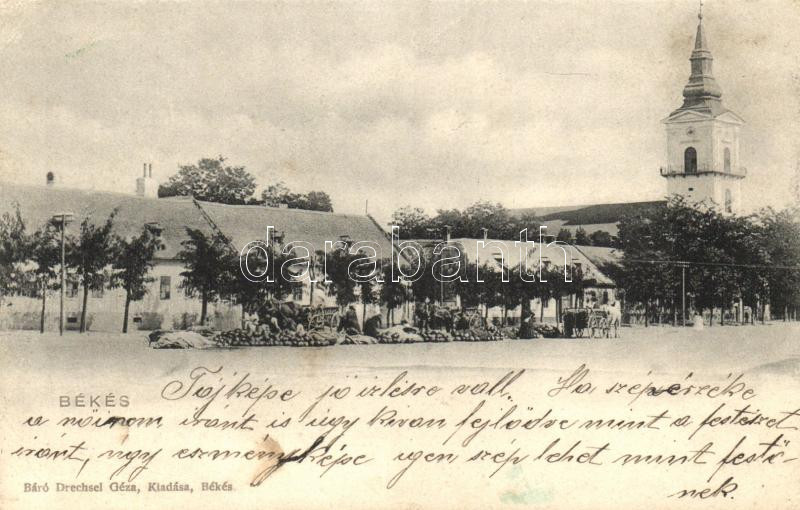 darabanth
BÉKÉS
Tájképe jó izlésre vall. Ha szépérzéke
a nőinem iránt is úgy ki van fejlődve mint a festészet
iránt, úgy eszményképe igen szép lehet mint festő-
nek.
Báró Drechsel Géza, Kiadása, Békés.